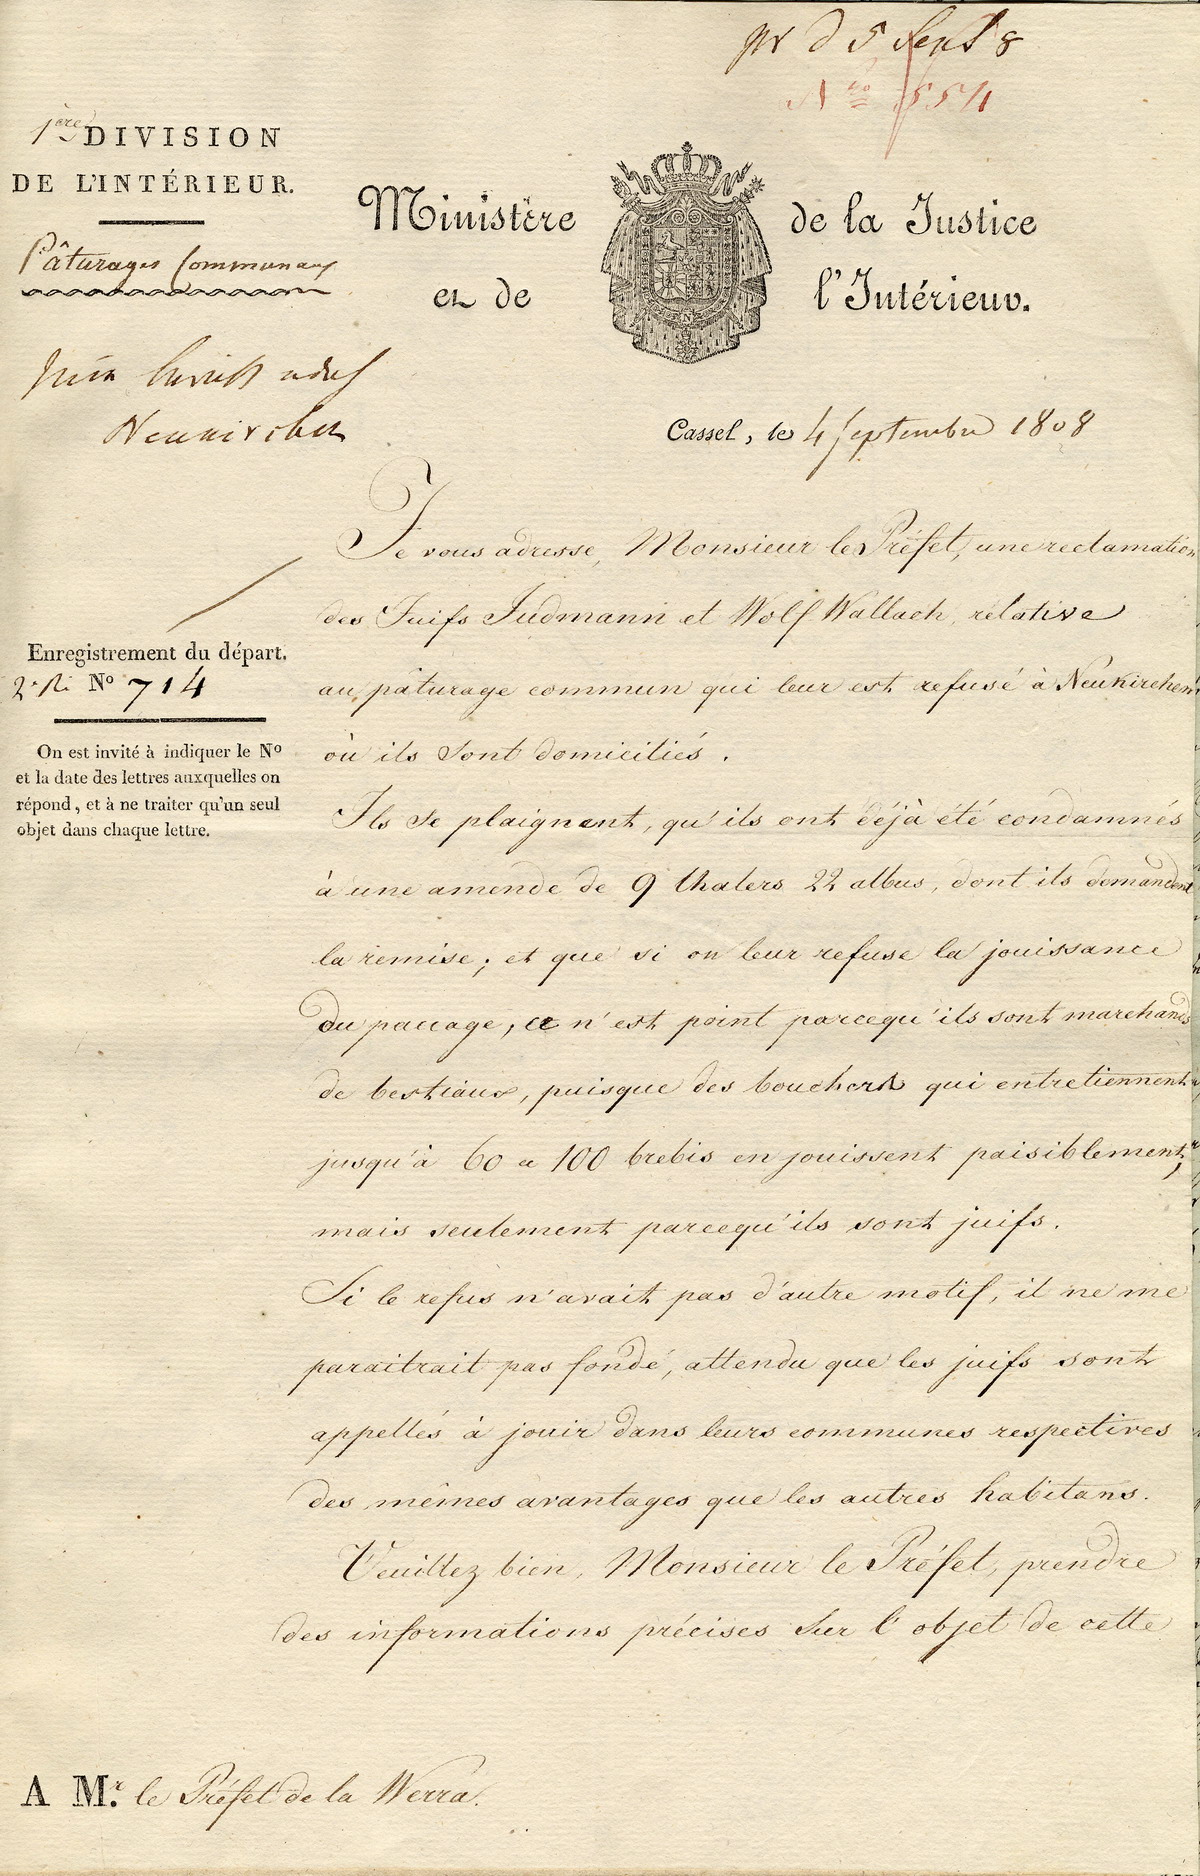 pr d 5 Sept 8
N° 554
1ère DIVISION
DE L'INTÉRIEUR.
Pâturages Communaux
Neukirchen
Ministère de la Justice
et de l'Intérieur.
Cassel, le 4 Septembre 1808
Je vous adresse, Monsieur le Préfet, une reclamation
des Juifs Judmann et Wolf Wallach, rélative
au pâturage commun qui leur est refusé à Neukirchen
où ils sont domiciliés.
Ils se plaignent, qu'ils ont déjà été condamnés
à une amende de 9 thalers 22 albus, dont ils demandent
la remise; et que si on leur refuse la jouissance
du paccage, ce n'est point parcequ'ils sont marchands
de bestiaux, puisque des bouchers qui entretiennent
jusqu'à 60 a 100 brebis en jouissent paisiblement,
mais seulement parcequ'ils sont juifs.
Si le refus n'avait pas d'autre motif, il ne me
paraitrait pas fondé, attendu que les juifs sont
appellés à jouir dans leurs communes respectives
des mêmes avantages que les autres habitans.
Veuillez bien, Monsieur le Préfet, prendre
des informations précises sur l'objet de cette
Enregistrement du départ.
N° 714
On est invité à indiquer le N°
et la date des lettres auxquelles on
répond, et à ne traiter qu'un seul
objet dans chaque lettre.
A Mr. le Préfet de la Werra.